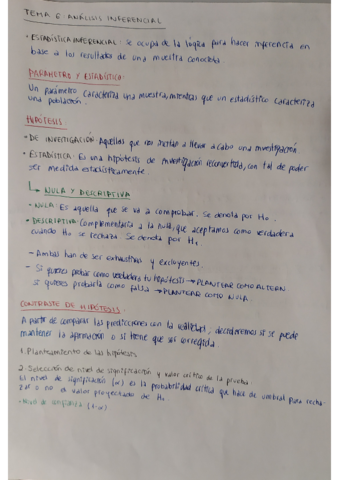 TEMA 6: ANÁLISIS INFERENCIAL
· ESTADÍSTICA INFERENCIAL: se ocupa de la lógica para hacer inferencia en
base a los resultados de una muestra conocida
PARÁMETRO Y ESTADÍSTICO:
Un parámetro caracteriza una muestra, mientras que un estadístico caracteriza
una población.
HIPÓTESIS:
· DE INVESTIGACIÓN: Aquellas que nos incitan a llevar a cabo una investigación
· ESTADÍSTICA: Es una hipótesis de investigación reconvertida, con tal de poder
ser medida estadísticamente
↳ NULA Y DESCRIPTIVA
- NULA: Es aquella que se va a comprobar. Se denota por H₀
- DESCRIPTIVA: Complementaria a la nula, que aceptamos como verdadera
cuando H₀ se rechaza. Se denota por H₁
- Ambas han de ser exhaustivas y excluyentes.
- Si quieres probar como verdadera tu hipótesis → PLANTEAR COMO ALTERN
si quieres probarla como falsa → PLANTEAR COMO NULA
CONTRASTE DE HIPÓTESIS:
A partir de comparar las predicciones con la realidad, decidiremos si se puede
mantener la afirmación o si tiene que ser corregida
1. Planteamiento de las hipótesis
2. Selección de nivel de significación y valor crítico de la prueba
El nivel de significación (α) es la probabilidad crítica que hace de umbral para recha-
zar o no el valor proyectado de H₀
· Nivel de confianza (1-α)